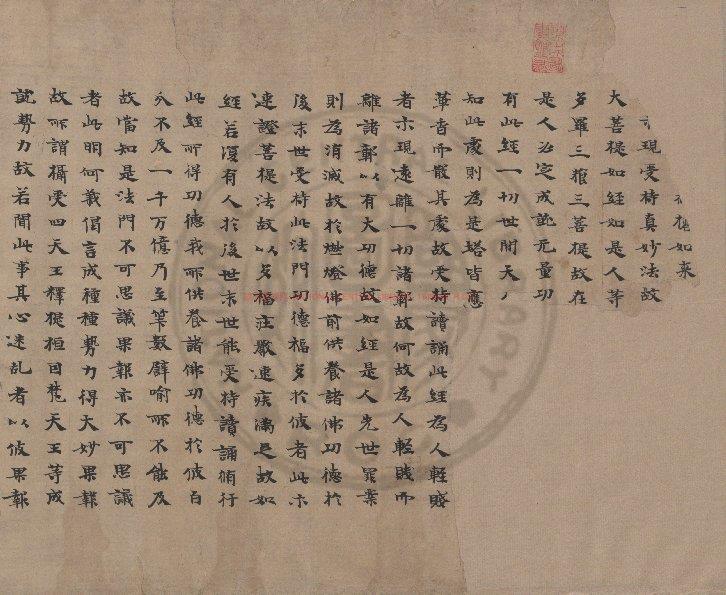 檀如来
現受持真妙法故
大菩提如經如是人等
多羅三藐三菩提故在
是人必定成就无量功
有此經一切世間天
知此處則為是塔皆應
華香而散其處故受持讀誦此經為人輕賤
者示現遠離一切諸鄣故何故為人輕賤而
離諸鄣以有大功德故如經是人先世罪業
則為消滅故於燃燈佛前供養諸佛功德於
後末世受持此法門功德福多於彼者此示
速證菩提法故以多福莊嚴速疾滿足故如
經若復有人於後世末世能受持讀誦脩行
此經所得功德我所供養諸佛功德於彼百
分不及一千万億乃至筭數譬喻所不能及
故當知是法門不可思議果報亦不可思議
者此明何義偈言成種種勢力得大妙果報
故所謂攝受四天王釋提桓因梵天王等成
就勢力故若聞此事其心迷乱者以彼果報